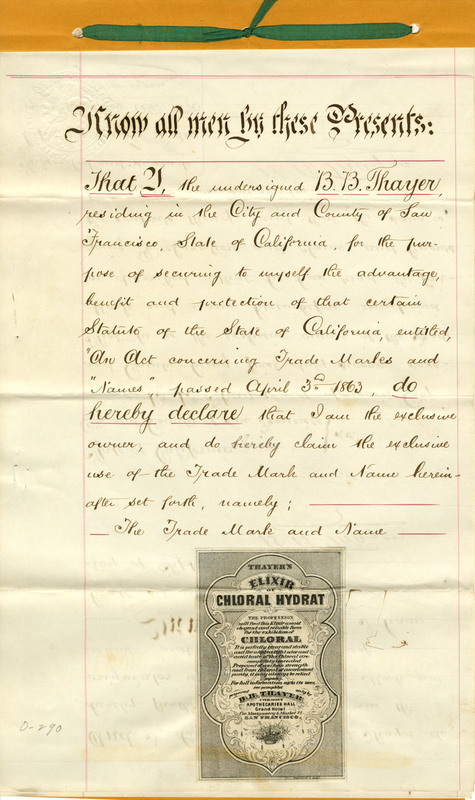 Know all men by these Presents:
That I, the undersigned B. B. Thayer,
residing in the City and County of San
Francisco, State of California, for the pur-
pose of securing to myself the advantage,
benefit and protection of that certain
Statute of the State of California, entitled,
"An Act concerning Trade Marks and
"Names" passed April 3d. 1863, do
hereby declare that I am the exclusive
owner, and do hereby claim the exclusive
use of the Trade Mark and Name herein-
after set forth, namely;
The Trade Mark and Name
THAYER'S
ELIXIR
OF
CHLORAL HYDRAT
THE PROFESSION
will find this Elixir a most
elegant and reliable form
for the exhibition of
CHLORAL
It is perfectly
and the
taste of the Chloral are
completely
B.B. THAYER
APOTHECARIES HALL
Grand Hotel
Cor Montgomery & Market St
SAN FRANCISCO.
D-290